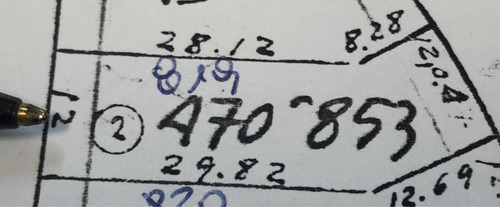 28.12
8.28
819
12
② 470-853
29.82
12.69
820